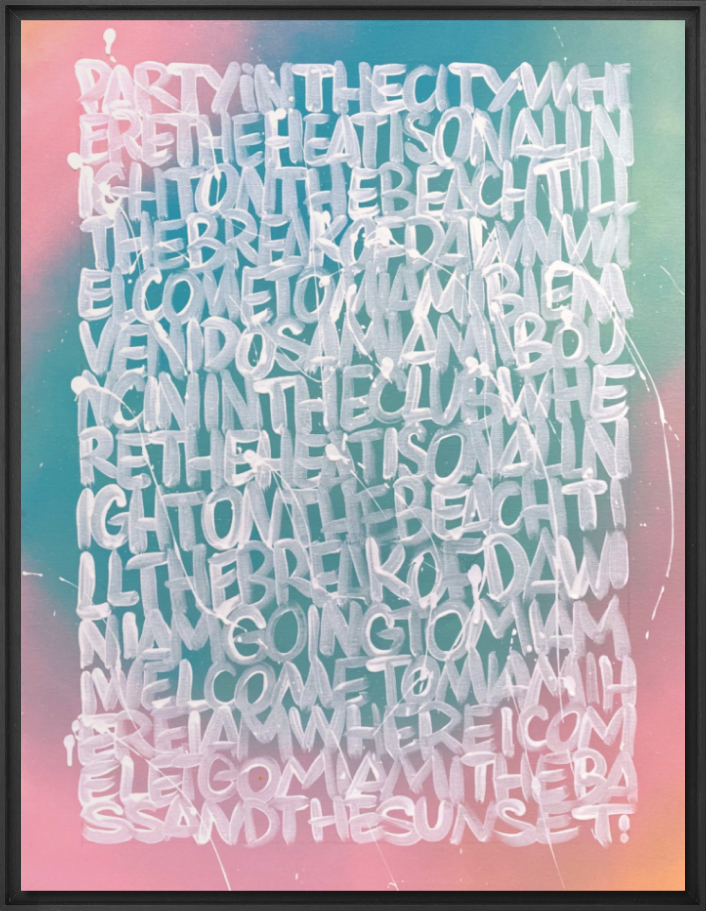 PARTYINTHECITYWH
ERETHEHEATISONALLN
IGHTONTHEBEACHTIL
THEBREAKOFDAWNW
ELCOMETOMIAMIBIEN
VENIDOSAMIAMIBOU
NCININTHECLUBWHE
RETHEHEATISONALLN
IGHTONTHEBEACHTI
LLTHEBREAKOFDAW
NIAMGOINGTOMIAM
IWELCOMETOMIAMIH
EREIAMWHEREICOM
ELETGOMIAMITHEBA
SSANDTHESUNSET!